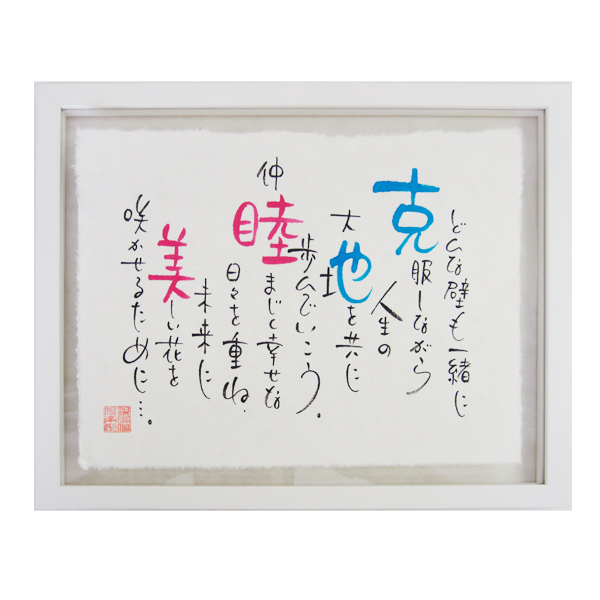 どんな壁も一緒に
克服しながら
人生の
大地を共に
歩んでいこう。
仲睦まじく幸せな
日々を重ね、
未来に
美しい花を
咲かせるために…。